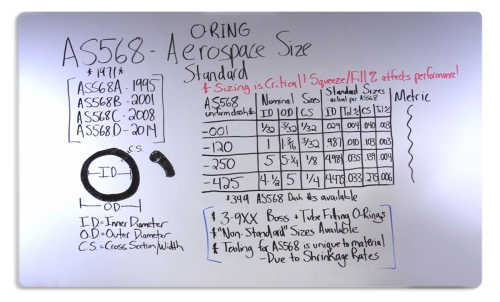 O-RING
AS568 - Aerospace Size
Standard
* 1971 *
AS568A - 1995
AS568B - 2001
AS568C - 2008
AS568D - 2014
C.S.
I.D.
O.D.
I.D = Inner Diameter
O.D = Outer Diameter
C.S = Cross Section/Width
* Sizing is Critical! Squeeze/Fill % affects performance!
AS568 Nominal Sizes Standard Sizes Metric
uniform dash # ID OD CS actual per AS568 ID Tol ± CS Tol ±
-001 1/32 3/32 1/32 .029 .004 .040 .003
-120 1 1 3/16 3/32 .987 .010 .103 .003
-250 5 5 1/4 1/8 4.984 .035 .139 .004
-425 4 1/2 5 1/4 4.475 .033 .275 .006
* 349 AS568 Dash #s available
* 3-9XX Boss + Tube Fitting O-Rings
* "Non-Standard" Sizes Available
* Tooling for AS568 is unique to material
- Due to Shrinkage Rates